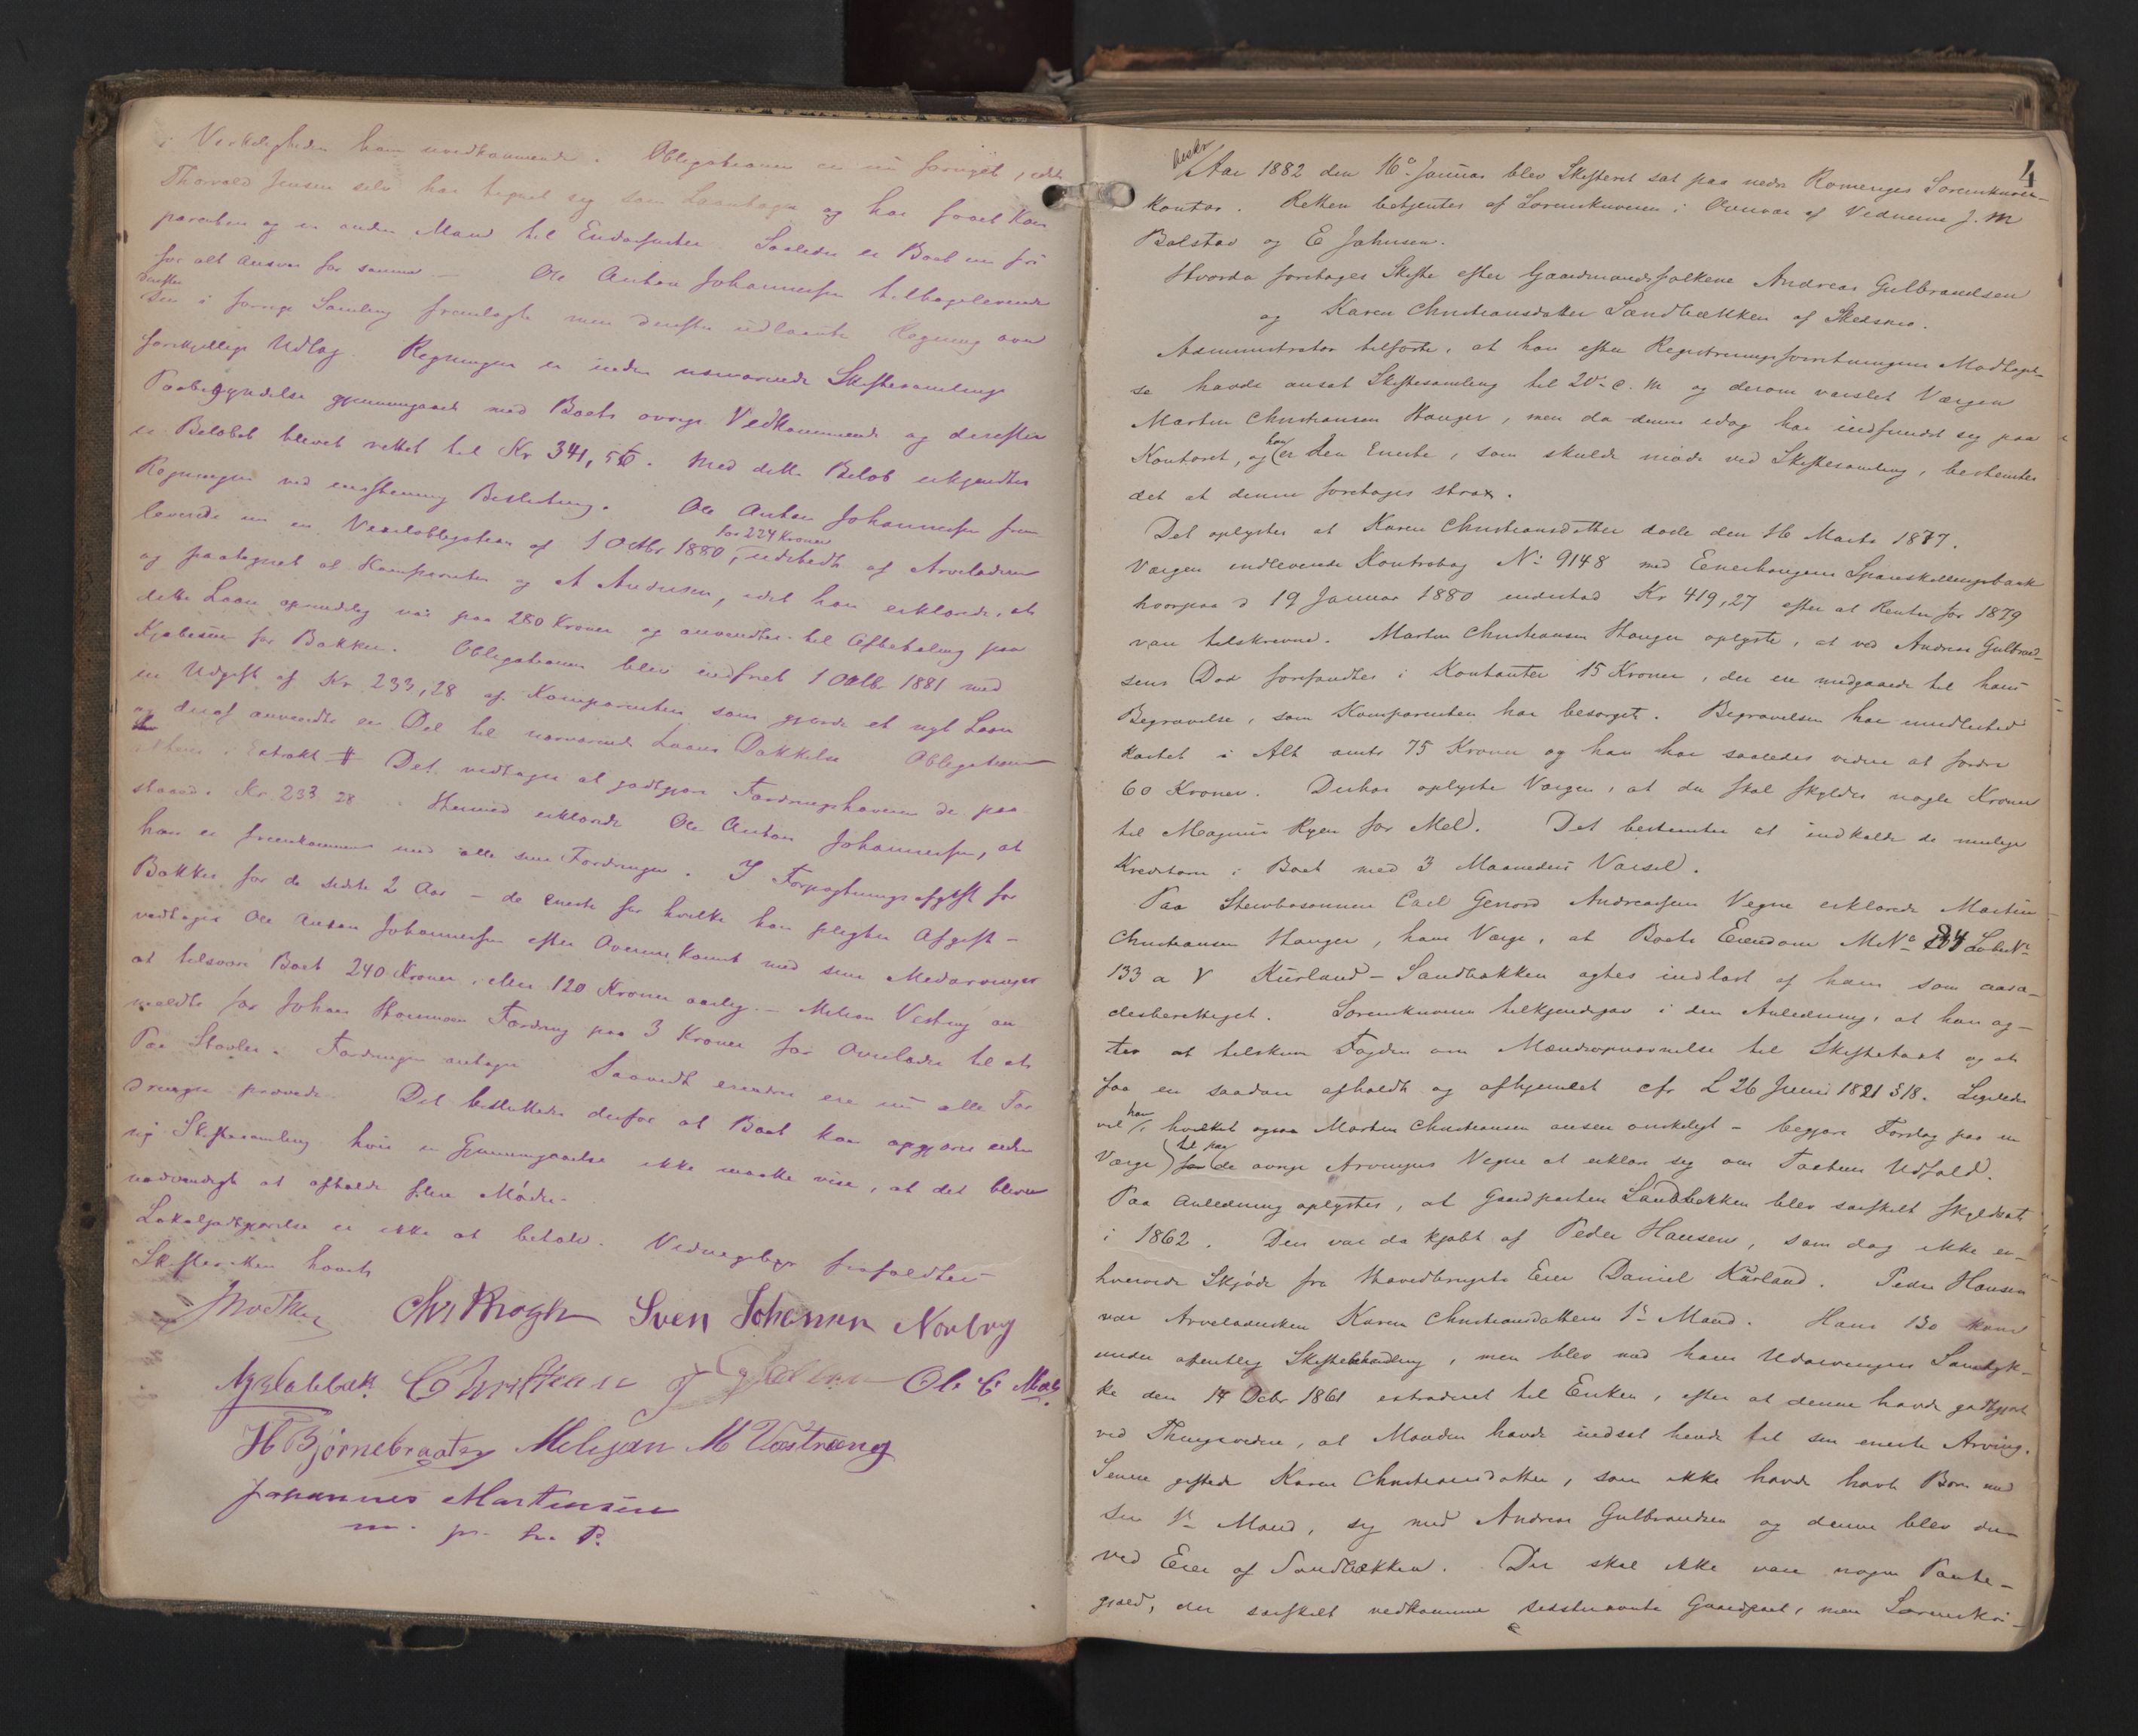 Virkeligheden ham uvedkommende. Obligationen er nu fornyet, idet
Thorvald Jensen selv har tegnet sig som Laantager og har faaet Kom
parenten og en anden Mand til Endossenter. Saaledes er Boet nu fri
for alt Ansvar for samme — Ole Anton Johannessen tilbageleverede
den i forrige Samling fremlagte men derefter udlaante Regning over
forskjellige Udlæg. Regningen er inden nærværende Skiftesamlings
Paabegyndelse gjennemgaaet med Boets øvrige Vedkommende og derefter
er Beløbet blevet rettet til Kr 341,56. Med dette Beløb erkjendtes
Regningen ved enstemmig Beslutning. Ole Anton Johannessen frem
leverede nu en Vexelobligation af 1 Octbr 1880, for 224 Kroner udstedt af Arveladeren
og paategnet af Komparenten og A Andersen, idet han erklærede, at
dette Laan oprindelig var paa 280 Kroner og anvendtes til Afbetaling paa
Kjøbesum for Bakken. Obligationen blev indfriet 1 Octbr 1881 med
en Udgift af Kr. 233,28 af Komparenten som gjorde et nyt Laan
og deraf anvendte en Del til nærværende Laans Dækkelse Obligationen
Extrakt # Det vedtages at godtgjøre Fordringshaveren de paa
staaede Kr. 233 28. Hermed erklærede Ole Anton Johannessen, at
han er fremkommen med alle sine Fordringer. I Forpagtningsafgift for
Bakken for de sidste 2 Aar – de eneste for hvilke han pligter Afgift –
vedtages Ole Anton Johannessen efter Overenskomst med sine Medarvinger
at tilsvare Boet 240 Kroner, eller 120 Kroner aarlig. – Melian Vestreng an
meldte for Johan Fordring paa 3 Kroner for Overlæder til et
Par Støvler. Fordringen antages Saavidt erindres ere nu alle For
dringer prøvede. Det besluttedes derfor at Boet kan opgjøres uden
ny Skiftesamling hvis en Gjennemgaaelse ikke maatte vise, at det bliver
nødvendigt at afholde flere Møder.
Lokalgodtgjørelse er ikke at betale. Vidnegebyr frafaldtes
Skifteretten hævet
Chr Krogh Sven Johansen Norbry
Christian Ole C
H Bjørnebraaten Melijan M Væstræng
Johannes Martinsen
m. p. h. P.
4
beskr
Aar 1882 den 16de Januar blev Skifteret sat paa nedre Romeriges Sorenskriver-
kontor. Retten betjentes af Sorenskriveren i Overvær af Vidnerne J. M
Bølstad og E Johnsen.
Hvorda foretoges Skifte efter Gaardmandsfolkene Andreas Gulbrandsen
og Karen Christiansdatter Sandbækken af Skedsmo.
Administrator tilførte, at han efter Registreringsforretningens Modtagel-
se havde ansat Skiftesamling til 20de d. M og derom varslet Værgen
Martin Christiansen Hauger, men da denne idag har indfundet sig paa
Kontoret, og han er den Eneste, som skulde møde ved Skiftesamling, bestemtes
det at denne foretages strax.
Det oplystes at Karen Christiansdatter døde den 16 Marts 1877.
Værgen indleverede Kontrabog No 9148 med Eenerhaugens Spareskillingsbank
hvorpaa d 19 Januar 1880 indestod Kr 419,27 efter at Renter for 1879
vare tilskrevne. Martin Christiansen Hauger oplyste, at ved Andreas Gulbrand-
sens Død forefandtes i Kontanter 15 Kroner, der ere medgaaede til hans
Begravelse, som Komparenten har besørget. Begravelsen har imidlertid
kostet i Alt omtr 75 Kroner og han har saaledes videre at fordre
60 Kroner. Derhos oplyste Værgen, at der skal skyldes nogle Kroner
til Magnus Ryen for Mel. Det bestemtes at indkalde de mulige
Kreditorer i Boet med 3 Maaneders Varsel.
Paa Stervbosønnen Carl Genord Andreassens Vegne erklærede Martin
Christiansen Hauger, hans Værge, at Boets Eiendom M No 134 Løbe No
133 a V Kurland – Sandbækken agtes indløst af ham som aasæ-
desberettiget. Sorenskriveren tilkjendegav i den Anledning, at han ag-
ter at tilskrive Fogden om Mændsopnævnelse til Skiftetaxt og at
faa en saadan afholdt og afhjemlet cfr L 26 Juni 1821 § 18. Ligeledes
vil han, hvilket ogsaa Martin Christiansen ansees ønskeligt – begjære Forslag paa en
Værge til paa for de øvrige Arvingers Vegne at erklære sig om Taxtens Udfald.
Paa Anledning oplystes, at Gaardparten Sandbækken blev særskilt skyldsat
i 1862. Den var da kjøbt af Peder Hansen, som dog ikke er-
hvervede Skjøde fra Hovedbrugets Eier Daniel Kurland. Peder Hansen
var Arveladersken Karen Christiansdatters 1ste Mand. Hans Bo kom
under offentlig Skiftebehandling, men blev med hans Udarvingers Samtyk-
ke den 14 Octbr 1861 extraderet til Enken, efter at denne havde godtgjort
ved Thingsvidne, at Manden havde indsat hende til sin eneste Arving.
Senere giftede Karen Christiansdatter, som ikke havde havt Børn med
sin 1ste Mand, sig med Andreas Gulbrandsen og denne blev der-
ved Eier af Sandbækken. Der skal ikke være nogen Pante-
gjæld, der særskilt vedkommer sidstnævnte Gaardpart, men Sorenskri-